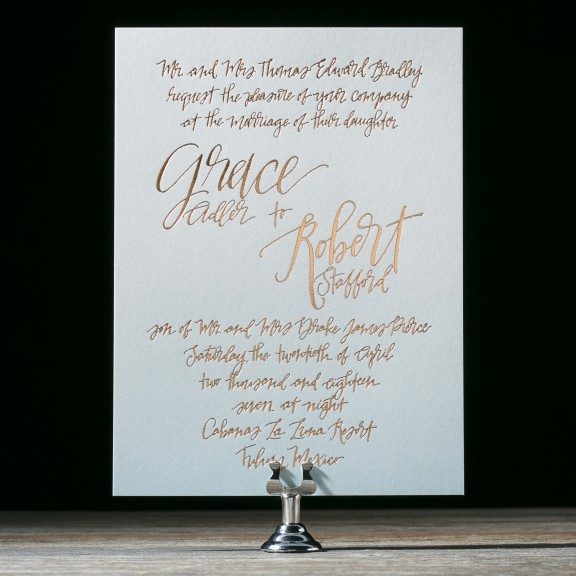 Mr and Mrs Thomas Edward Bradley
request the pleasure of your company
at the marriage of their daughter
Grace
Adler to
Robert
Stafford
son of Mr and Mrs Drake James Pierce
Saturday, the twentieth of April
two thousand and eighteen
seven at night
Cabanas La Luna Resort
Tulum Mexico